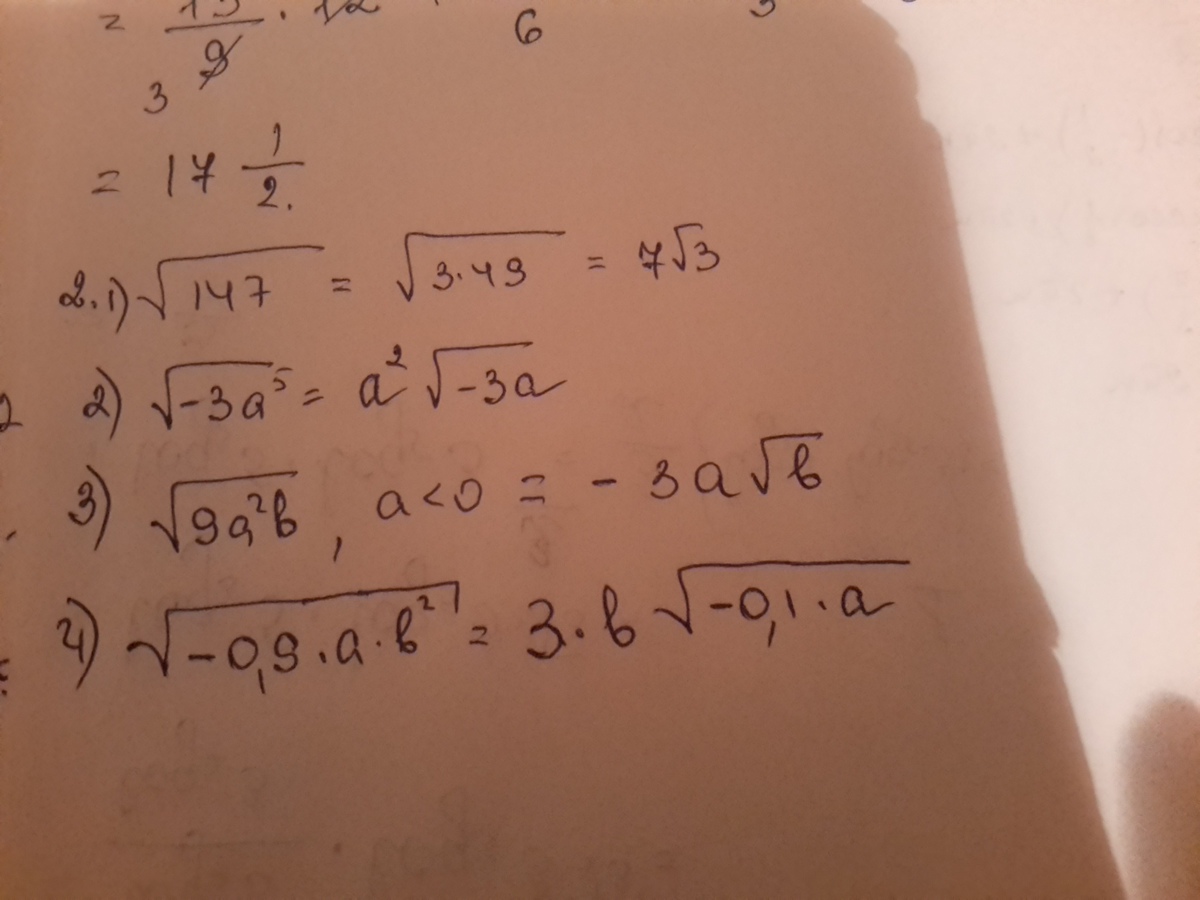 = 15/9 · 12 6
3
= 17 1/2.
2.1) √147 = √3·49 = 7√3
2) √-3a⁵ = a² √-3a
3) √9a²b, a<0 = - 3a√b
4) √-0,9·a·b² = 3·b √-0,1·a